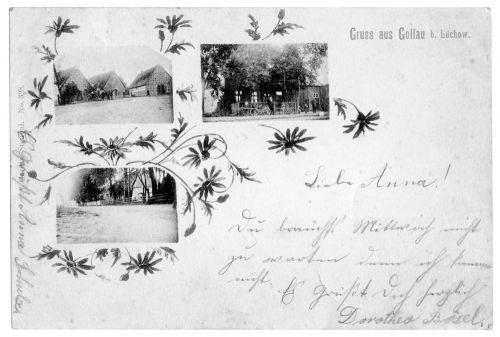 Gruss aus Gollau b. Lüchow.
Liebe Anna!
Du brauchst Mittwoch nicht
zu warten denn ich komme
nicht. Es Grüßt Dich herzlich
Dorothea
No. 399